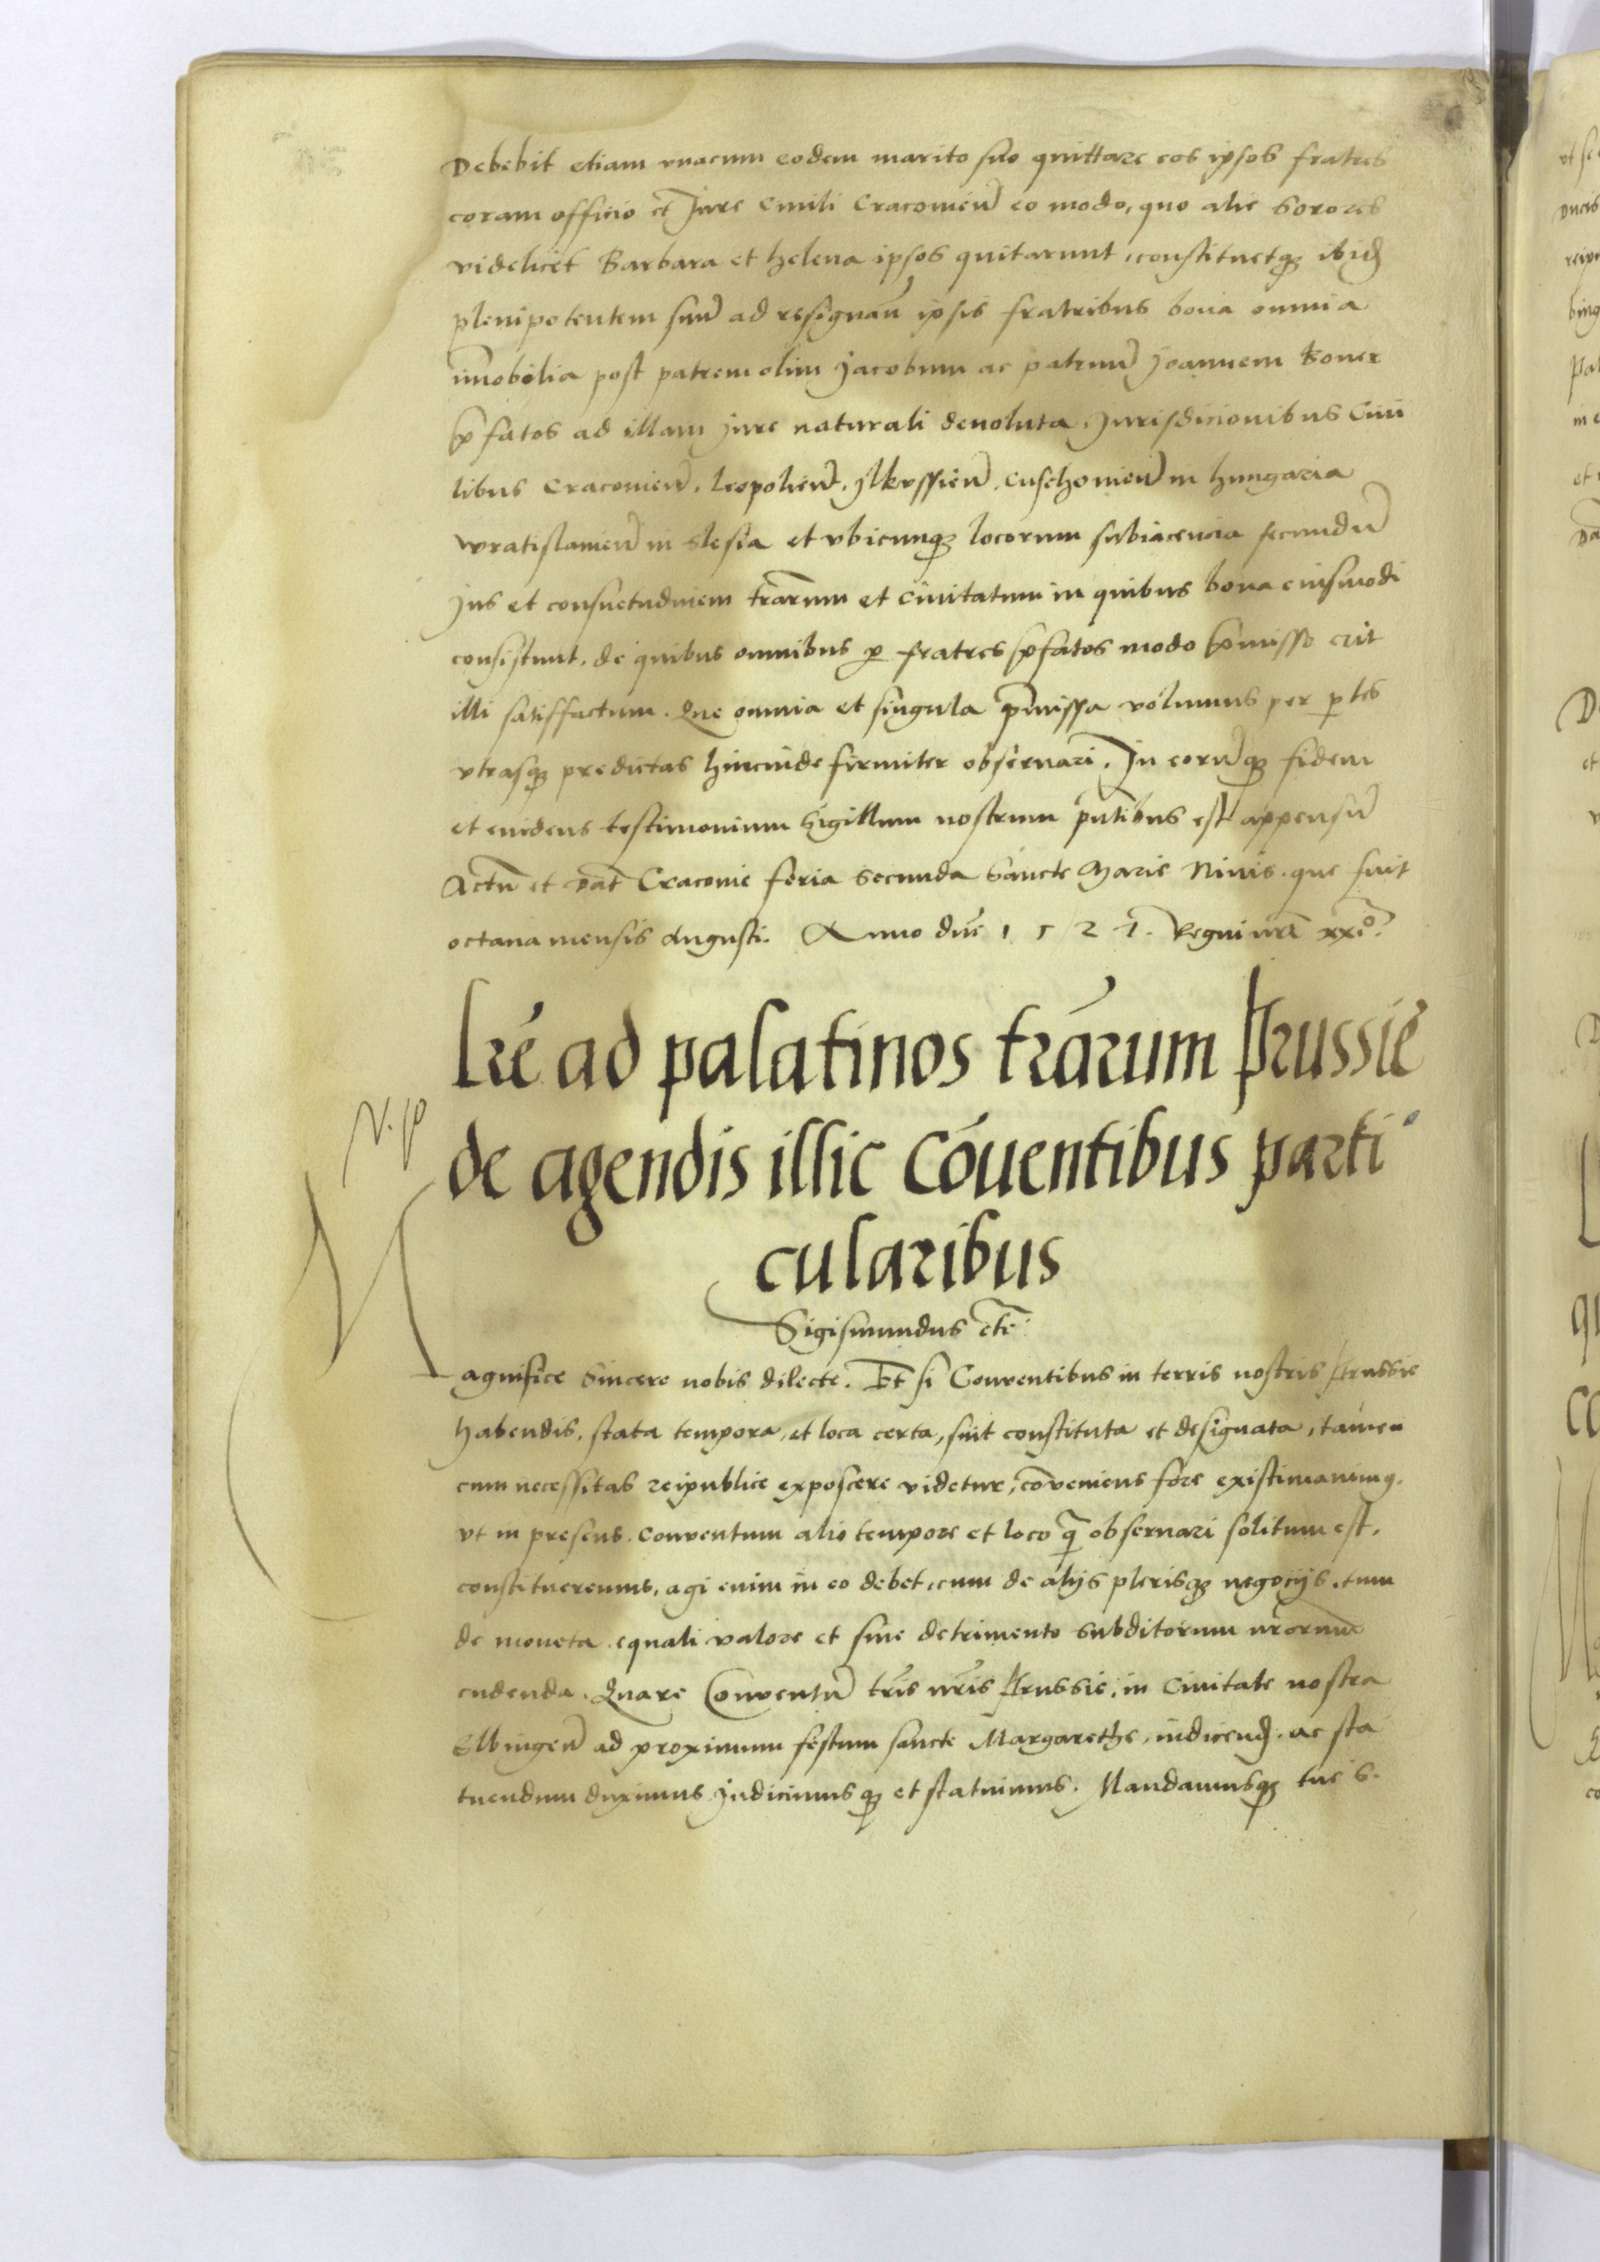 Debebit etiam vnacum eodem marito suo quittare eos ipsos fratres
coram officio et Jure Ciuili Cracovien̄ eo modo, quo alie Sorores
videlicet Barbara et helena ipsos quitarunt, constituetqꝫ ibid̄
plenipotentem suū ad resignan̄ ipsis fratribus bona omnia
im̄obilia post patrem olim Jacobum ac patruū Joannem Boner
p̄fatos ad illam Jure naturali deuoluta, Jurisdicionibus Ciui
libus Cracovien̄. Leopolien̄. Jlkussien̄. Cuschovien̄ in hungaria
wratislauien̄ in Slesia et vbicunqꝫ locorum subiacencia secundū
Jus et consuetudinem tr̄arum et Ciuitatum in quibus bona eiusmodi
consistunt. de quibus omnibus ꝑ fratres p̄fatos modo p̄misso erit
illi satisffactum. Que omnia et singula p̄missa volumus per ptes
vtrasqꝫ predictas hincinde firmiter obseruari. In eorūqꝫ fidem
et euidens testimonium Sigillum nostrum pn̄tibus est appensū
Actū et dat̄ Cracovie feria Secunda Sancte Marie Niuis. que fuit
octaua mensis Augusti. Anno dn̄i 1 5 2 7. Regni nr̄i xxi°.
Lr̄e ad palatinos tr̄arum Prussie
de agendis illic Cōuentibus parti
cularibus
Sigismundus etc̄
Magnifice Sincere nobis dilecte. Et si Conventibus in terris nostris Prussie
habendis, stata tempora, et loca certa, sint constituta et designata, tamen
cum necessitas reipublice exposcere videtur, cōveniens fore existimauimus.
vt in presens. Conventum alio tempore et loco q̄ obseruari solitum est,
constitueremus, agi enim in eo debet, cum de alijs plerisqꝫ negocijs, tum
de moneta equali valore et sine detrimento Subditorum nr̄orum
cudenda. Quare Conventū tr̄is nr̄is Prussie, in Ciuitate nostra
Elbingen̄ ad proximum festum sancte Margarethe, indicend̄. ac sta
tuendum duximus Jndicimusqꝫ et statuimus. Mandamusqꝫ tue S.